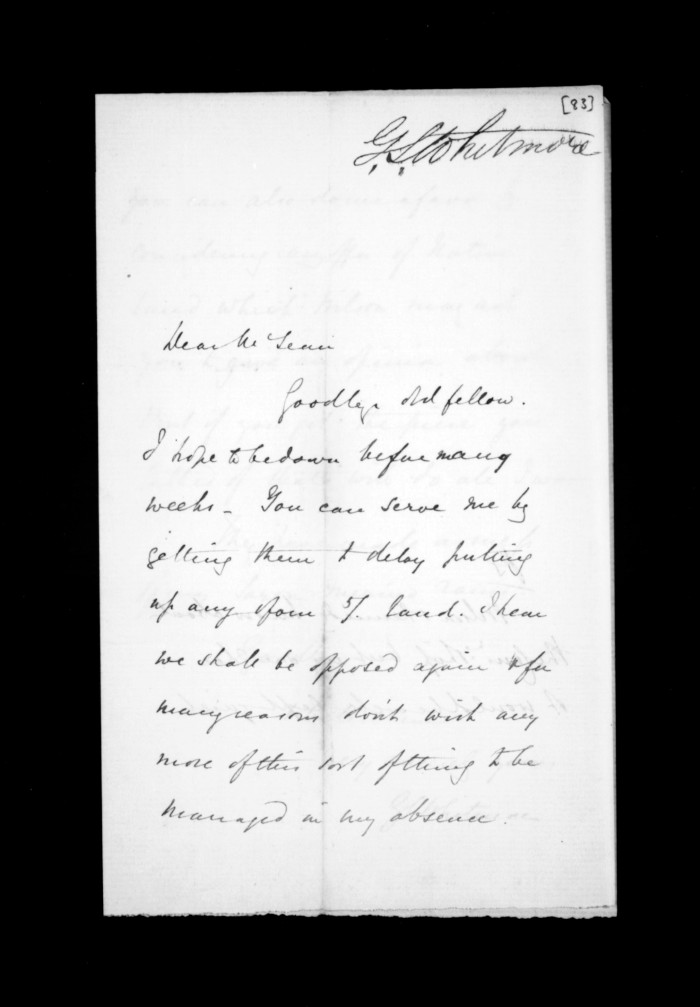 [83]
G. S. Whitmore
Dear McLean
Goodbye old fellow.
I hope to be down before many
weeks - You can serve me by
getting them to delay putting
up any of our 5/. land. I hear
we shall be opposed again & for
many reasons don't wish any
more of this sort of thing to be
managed in my absence.